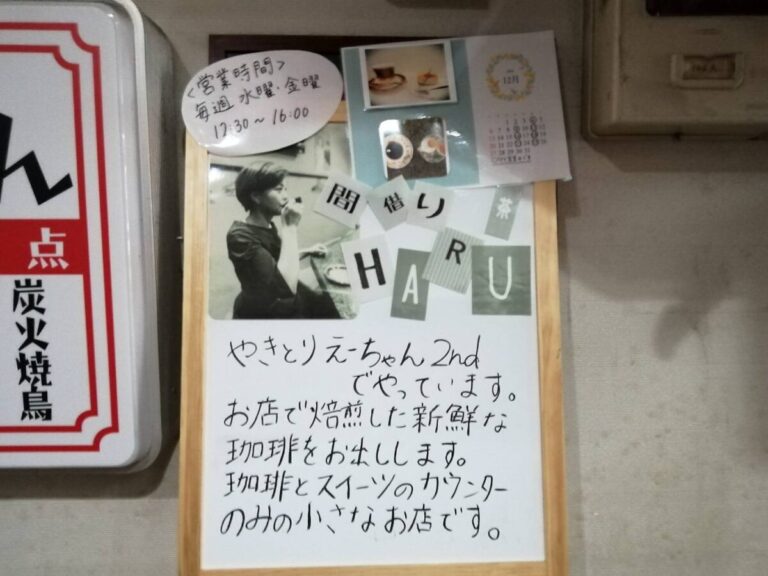 ん
点
炭火焼鳥
<営業時間>
毎週 水曜・金曜
12:30〜16:00
12月
間借り 茶
HARU
やきとりえーちゃん2nd
でやっています。
お店で焙煎した新鮮な
珈琲をお出しします。
珈琲とスイーツのカウンター
のみの小さなお店です。